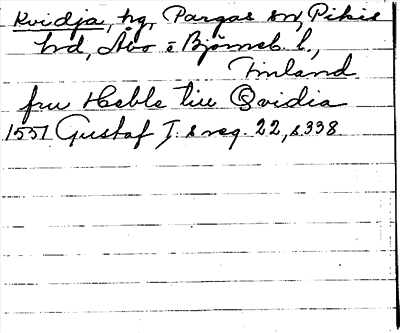 Kvidja, hg, Pargas sn, Pikis
hd, Åbo o Björneb. l.,
Finland
fru Heble till Qvidia
1551 Gustaf I:s reg. 22, s. 338